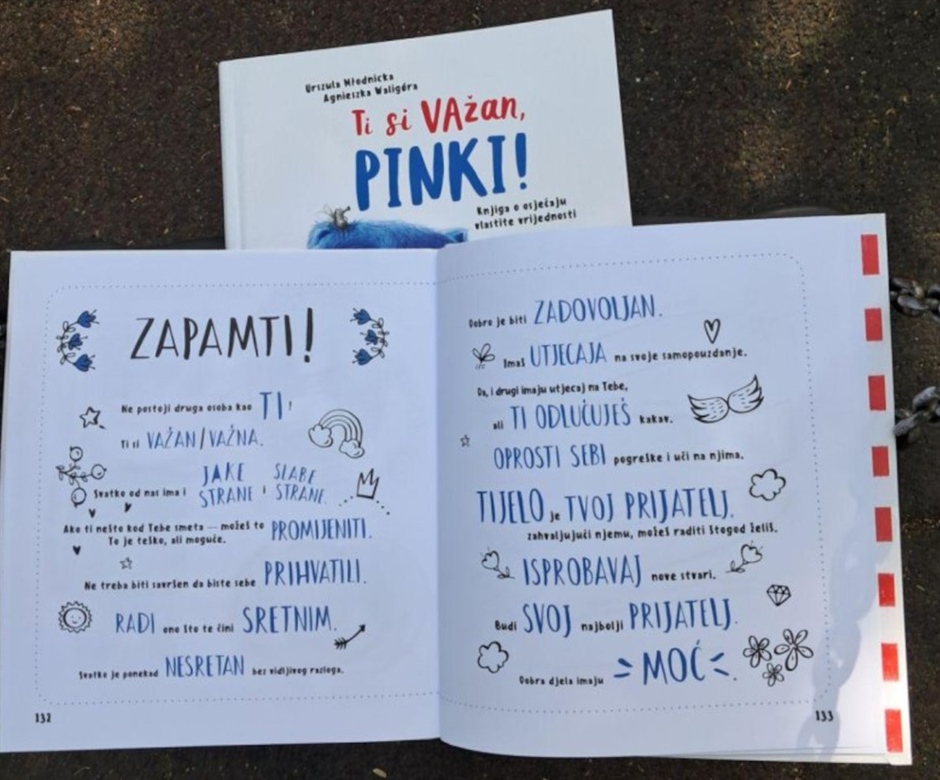 Urszula Młodnicka
Agnieszka Waligóra
Ti si VAžan,
PINKI!
Knjiga o osjećaju
vlastite vrijednosti
ZAPAMTI!
Ne postoji druga osoba kao TI!
Ti si VAŽAN/VAŽNA.
Svatko od nas ima i JAKE STRANE i SLABE STRANE.
Ako ti nešto kod Tebe smeta — možeš to PROMIJENITI.
To je teško, ali moguće.
Ne treba biti savršen da biste sebe PRIHVATILI.
RADI ono što te čini SRETNIM.
Svatko je ponekad NESRETAN bez vidljivog razloga.
132
Dobro je biti ZADOVOLJAN.
Imaš UTJECAJA na svoje samopouzdanje.
Da, i drugi imaju utjecaj na Tebe,
ali TI ODLUČUJEŠ kakav.
OPROSTI SEBI pogreške i uči na njima.
TIJELO je TVOJ PRIJATELJ.
zahvaljujući njemu, možeš raditi štogod želiš.
ISPROBAVAJ nove stvari.
Budi SVOJ najbolji PRIJATELJ.
Dobra djela imaju MOĆ.
133